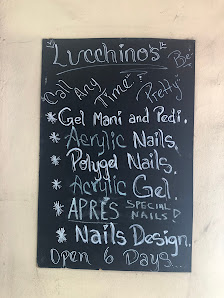 Lucchino's
Call Any Time & Be Pretty
* Gel Mani and Pedi.
* Acrylic Nails.
* Polygel Nails.
* Acrylic Gel.
* APRÉS SPECIAL NAILS!
* Nails Design.
Open 6 Days...